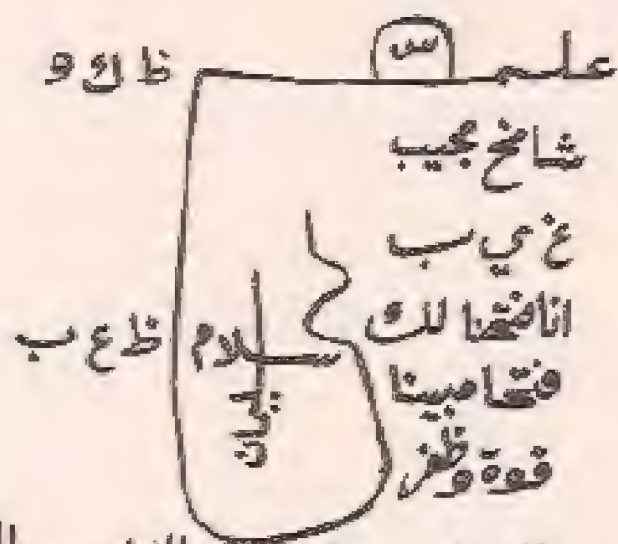 علم س ظ ك و
شامخ مجيب
غ ي ب
انا فتحنا لك
فتحا مبينا
قوة وظفر
سلام ظ ع ب